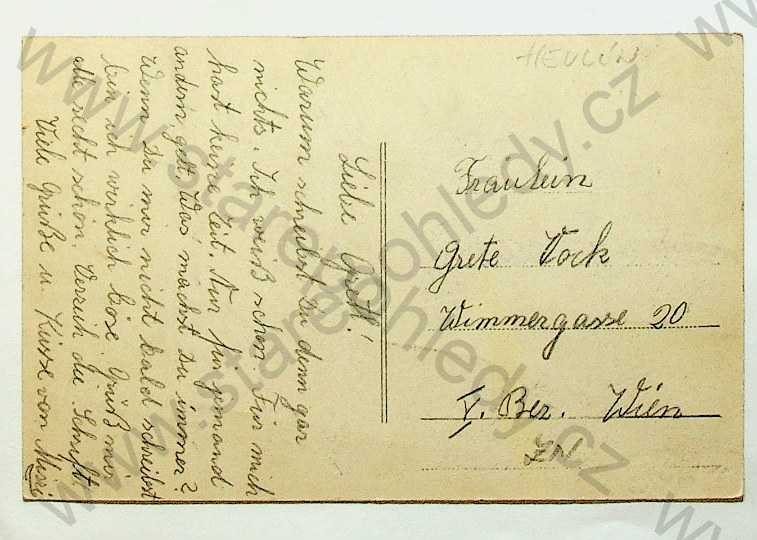 HEULÚN
Liebe Gretl!
Warum schreibst Du denn gar
nichts. Ich weiß schon Für mich
hast keine Zeit. Nur für jemand
andern, gelt. Was machst Du immer?
Wenn Du mir nicht bald schreibst
bin ich wirklich böse. Grüß mir
alle recht schön. Verzeih die Schrift.
Viele Grüße u. Küsse von Mizzi
Fraulein
Grete Vock
Wimmergasse 20
V. Bez. Wien
ZN
www.starepohledy.cz
www.starepohledy.cz